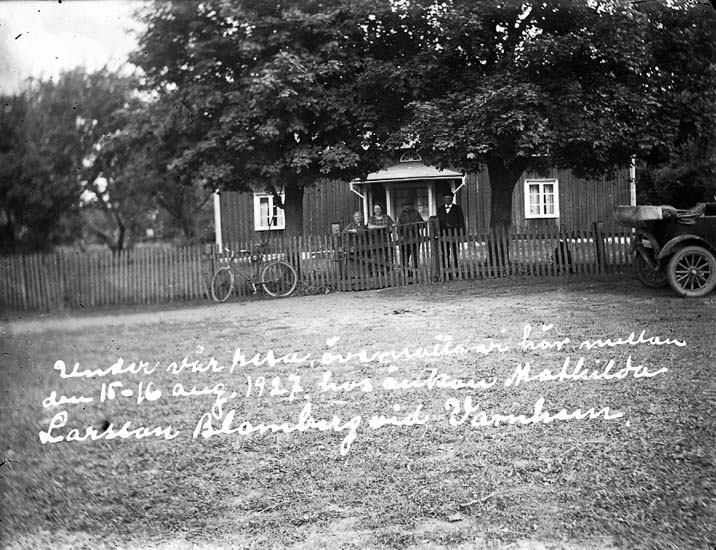 Under vår resa, övernatta vi här mellan
den 15-16 aug. 1927. hos änkan Mathilda
Larsson Blomberg vid Varnhem.